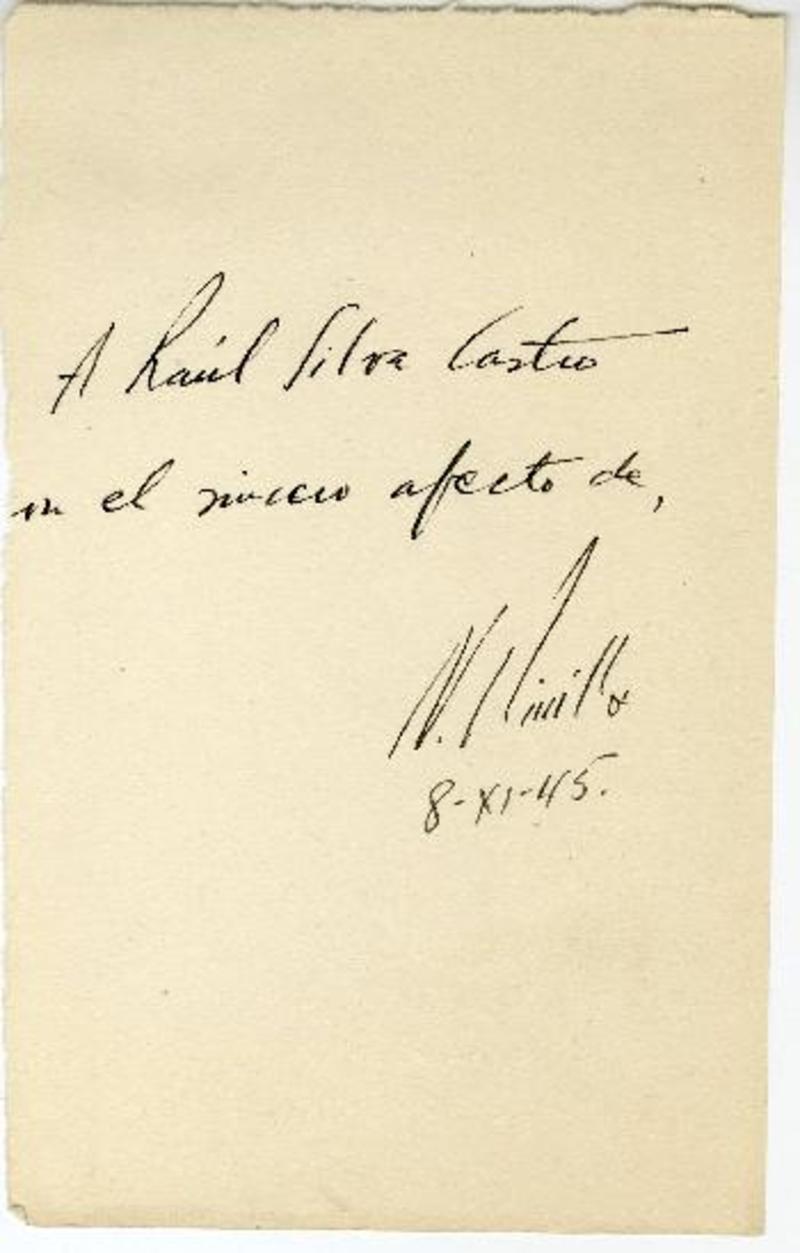 A Raúl Silva Castro
on el sincero afecto de,
N. Pinilla
8-XI-45.